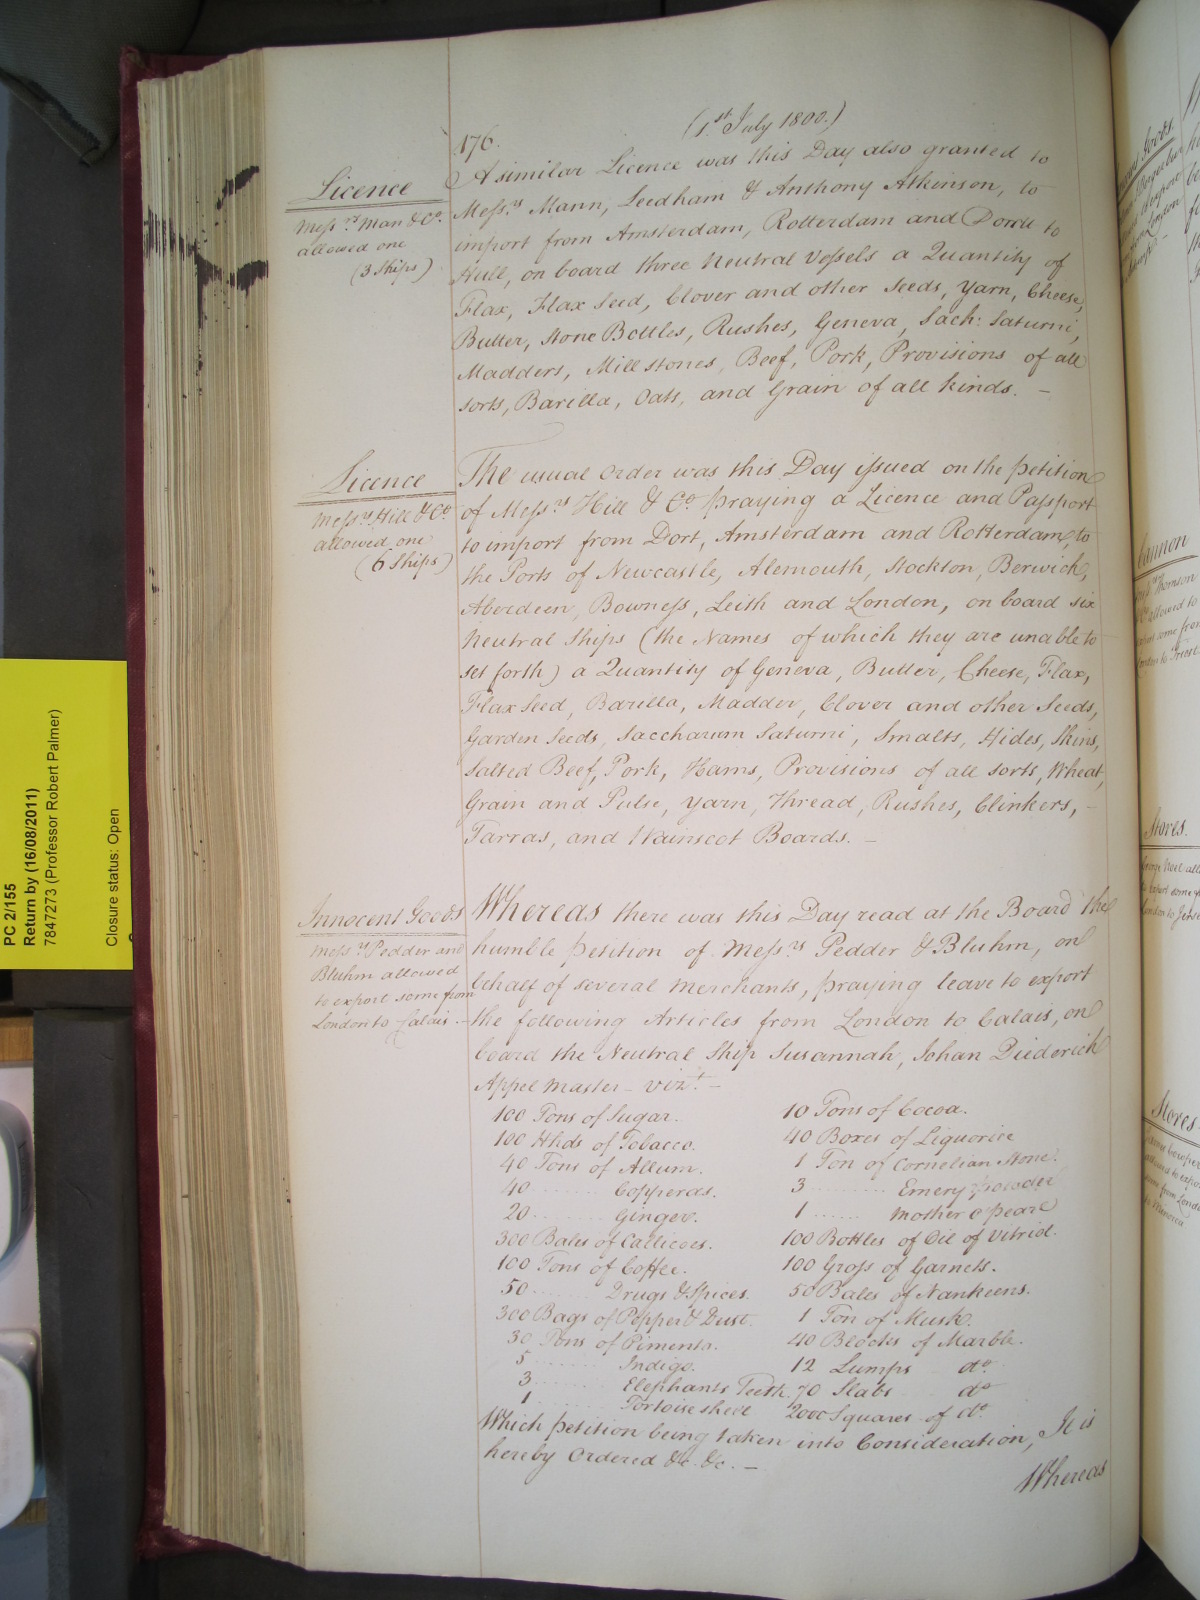 (1.st July 1800.)
176.
Licence
Mess.rs Man & Co.
allowed one
(3 Ships)
A similar Licence was this Day also granted to
Mess.rs Mann, Leedham & Anthony Atkinson, to
import from Amsterdam, Rotterdam and Dordt to
Hull, on board three Neutral Vessels a Quantity of
Flax, Flax Seed, Clover and other Seeds, Yarn, Cheese,
Butter, Stone Bottles, Rushes, Geneva, Sach: Saturni,
Madders, Mill stones, Beef, Pork, Provisions of all
sorts, Barilla, Oats, and Grain of all kinds. —
Licence
Mess.rs Hill & Co.
allowed one
(6 Ships)
The usual Order was this Day issued on the petition
of Mess.rs Hill & Co. praying a Licence and Passport
to import from Dort, Amsterdam and Rotterdam, to
the Ports of Newcastle, Alemouth, Stockton, Berwick,
Aberdeen, Bowness, Leith and London, on board six
Neutral Ships (the Names of which they are unable to
set forth) a Quantity of Geneva, Butter, Cheese, Flax,
Flax Seed, Barilla, Madder, Clover and other Seeds,
Garden Seeds, Saccharum Saturni, Smalts, Hides, Skins,
Salted Beef, Pork, Hams, Provisions of all sorts, Wheat,
Grain and Pulse, Yarn, Thread, Rushes, Clinkers, -
Tarras, and Wainscot Boards. —
Innocent Goods
Mess.rs Pedder and
Bluhm allowed
to export some from
London to Calais. —
Whereas there was this Day read at the Board the
humble petition of Mess.rs Pedder & Bluhm, on
behalf of several Merchants, praying leave to export
the following Articles from London to Calais, on
board the Neutral Ship Susannah, Johan Diederich
Appel Master — vizt. —
100 Tons of Sugar.
100 Hhds of Tobacco.
40 Tons of Allum.
40 ........ Copperas.
20 ........ Ginger.
300 Bales of Callicoes.
100 Tons of Coffee.
50 ........ Drugs & Spices.
300 Bags of Pepper & Dust.
30 Tons of Pimento.
5 ........ Indigo.
3 ........ Elephants Teeth.
1 ........ Tortoiseshell
10 Tons of Cocoa.
40 Boxes of Liquorice
1 Ton of Cornelian Stone.
3 ........ Emery powder
1 ...... Mother o' pearl
100 Bottles of Oil of Vitriol.
100 Gross of Garnets.
50 Bales of Nankeens.
1 Ton of Musk.
40 Blocks of Marble.
12 Lumps do.
70 Slabs do
2000 Squares of do.
Which petition being taken into Consideration, It is
hereby Ordered &c. &c. —
Whereas
PC 2/155
Return by (16/08/2011)
7847273 (Professor Robert Palmer)
Closure status: Open
Cannon
Stores.
Stores